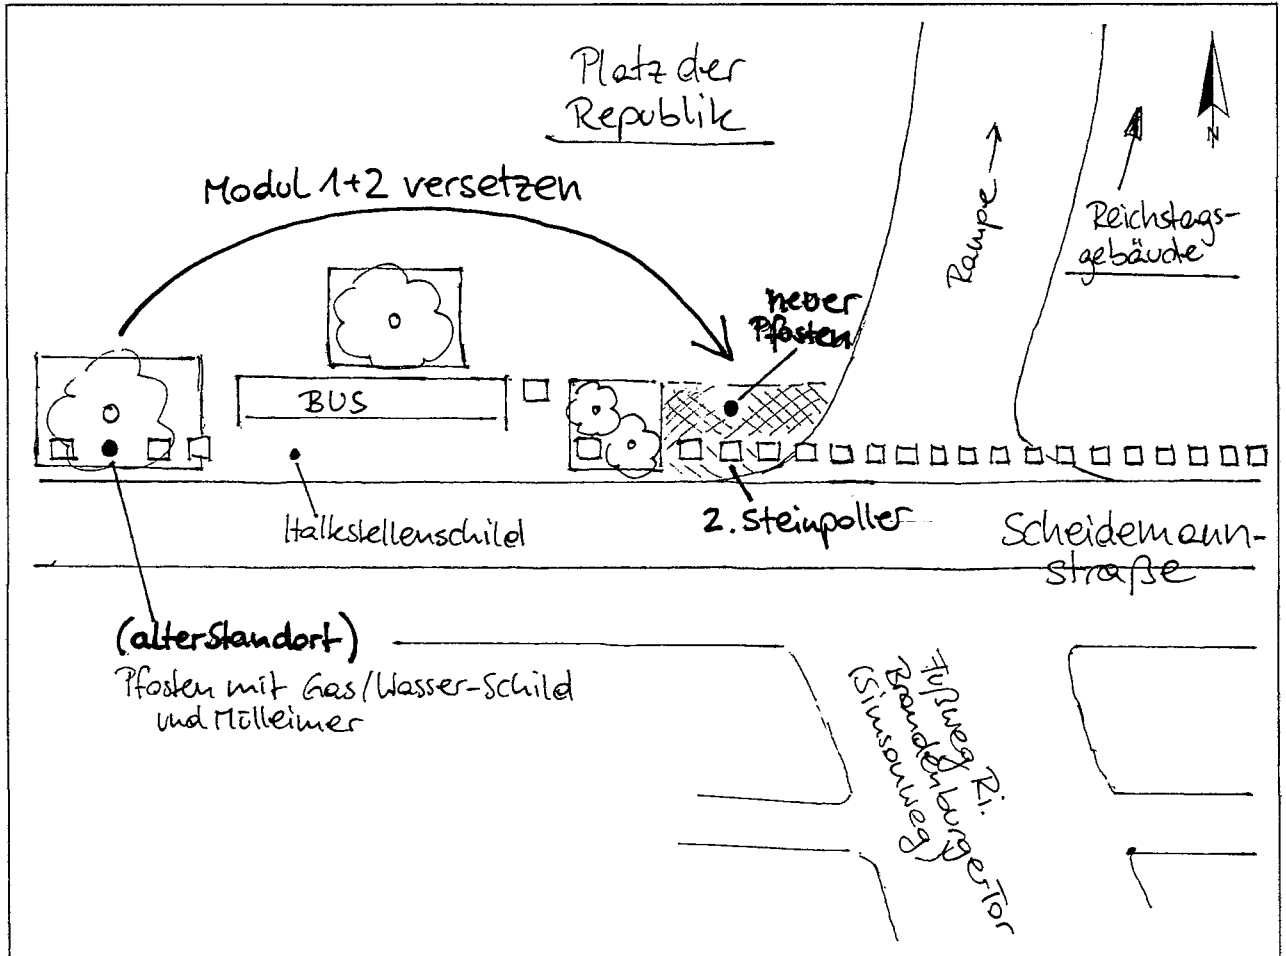 Platz der
Republik
Modul 1+2 versetzen
Rampe
N
Reichstags-
gebäude
neuer
Pfosten
BUS
Haltestellenschild
2. Steinpoller
Scheidemann-
straße
(alter Standort)
Pfosten mit Gas/Wasser-Schild
und Mülleimer
Fußweg Ri.
Brandenburger Tor
(Simsonweg)